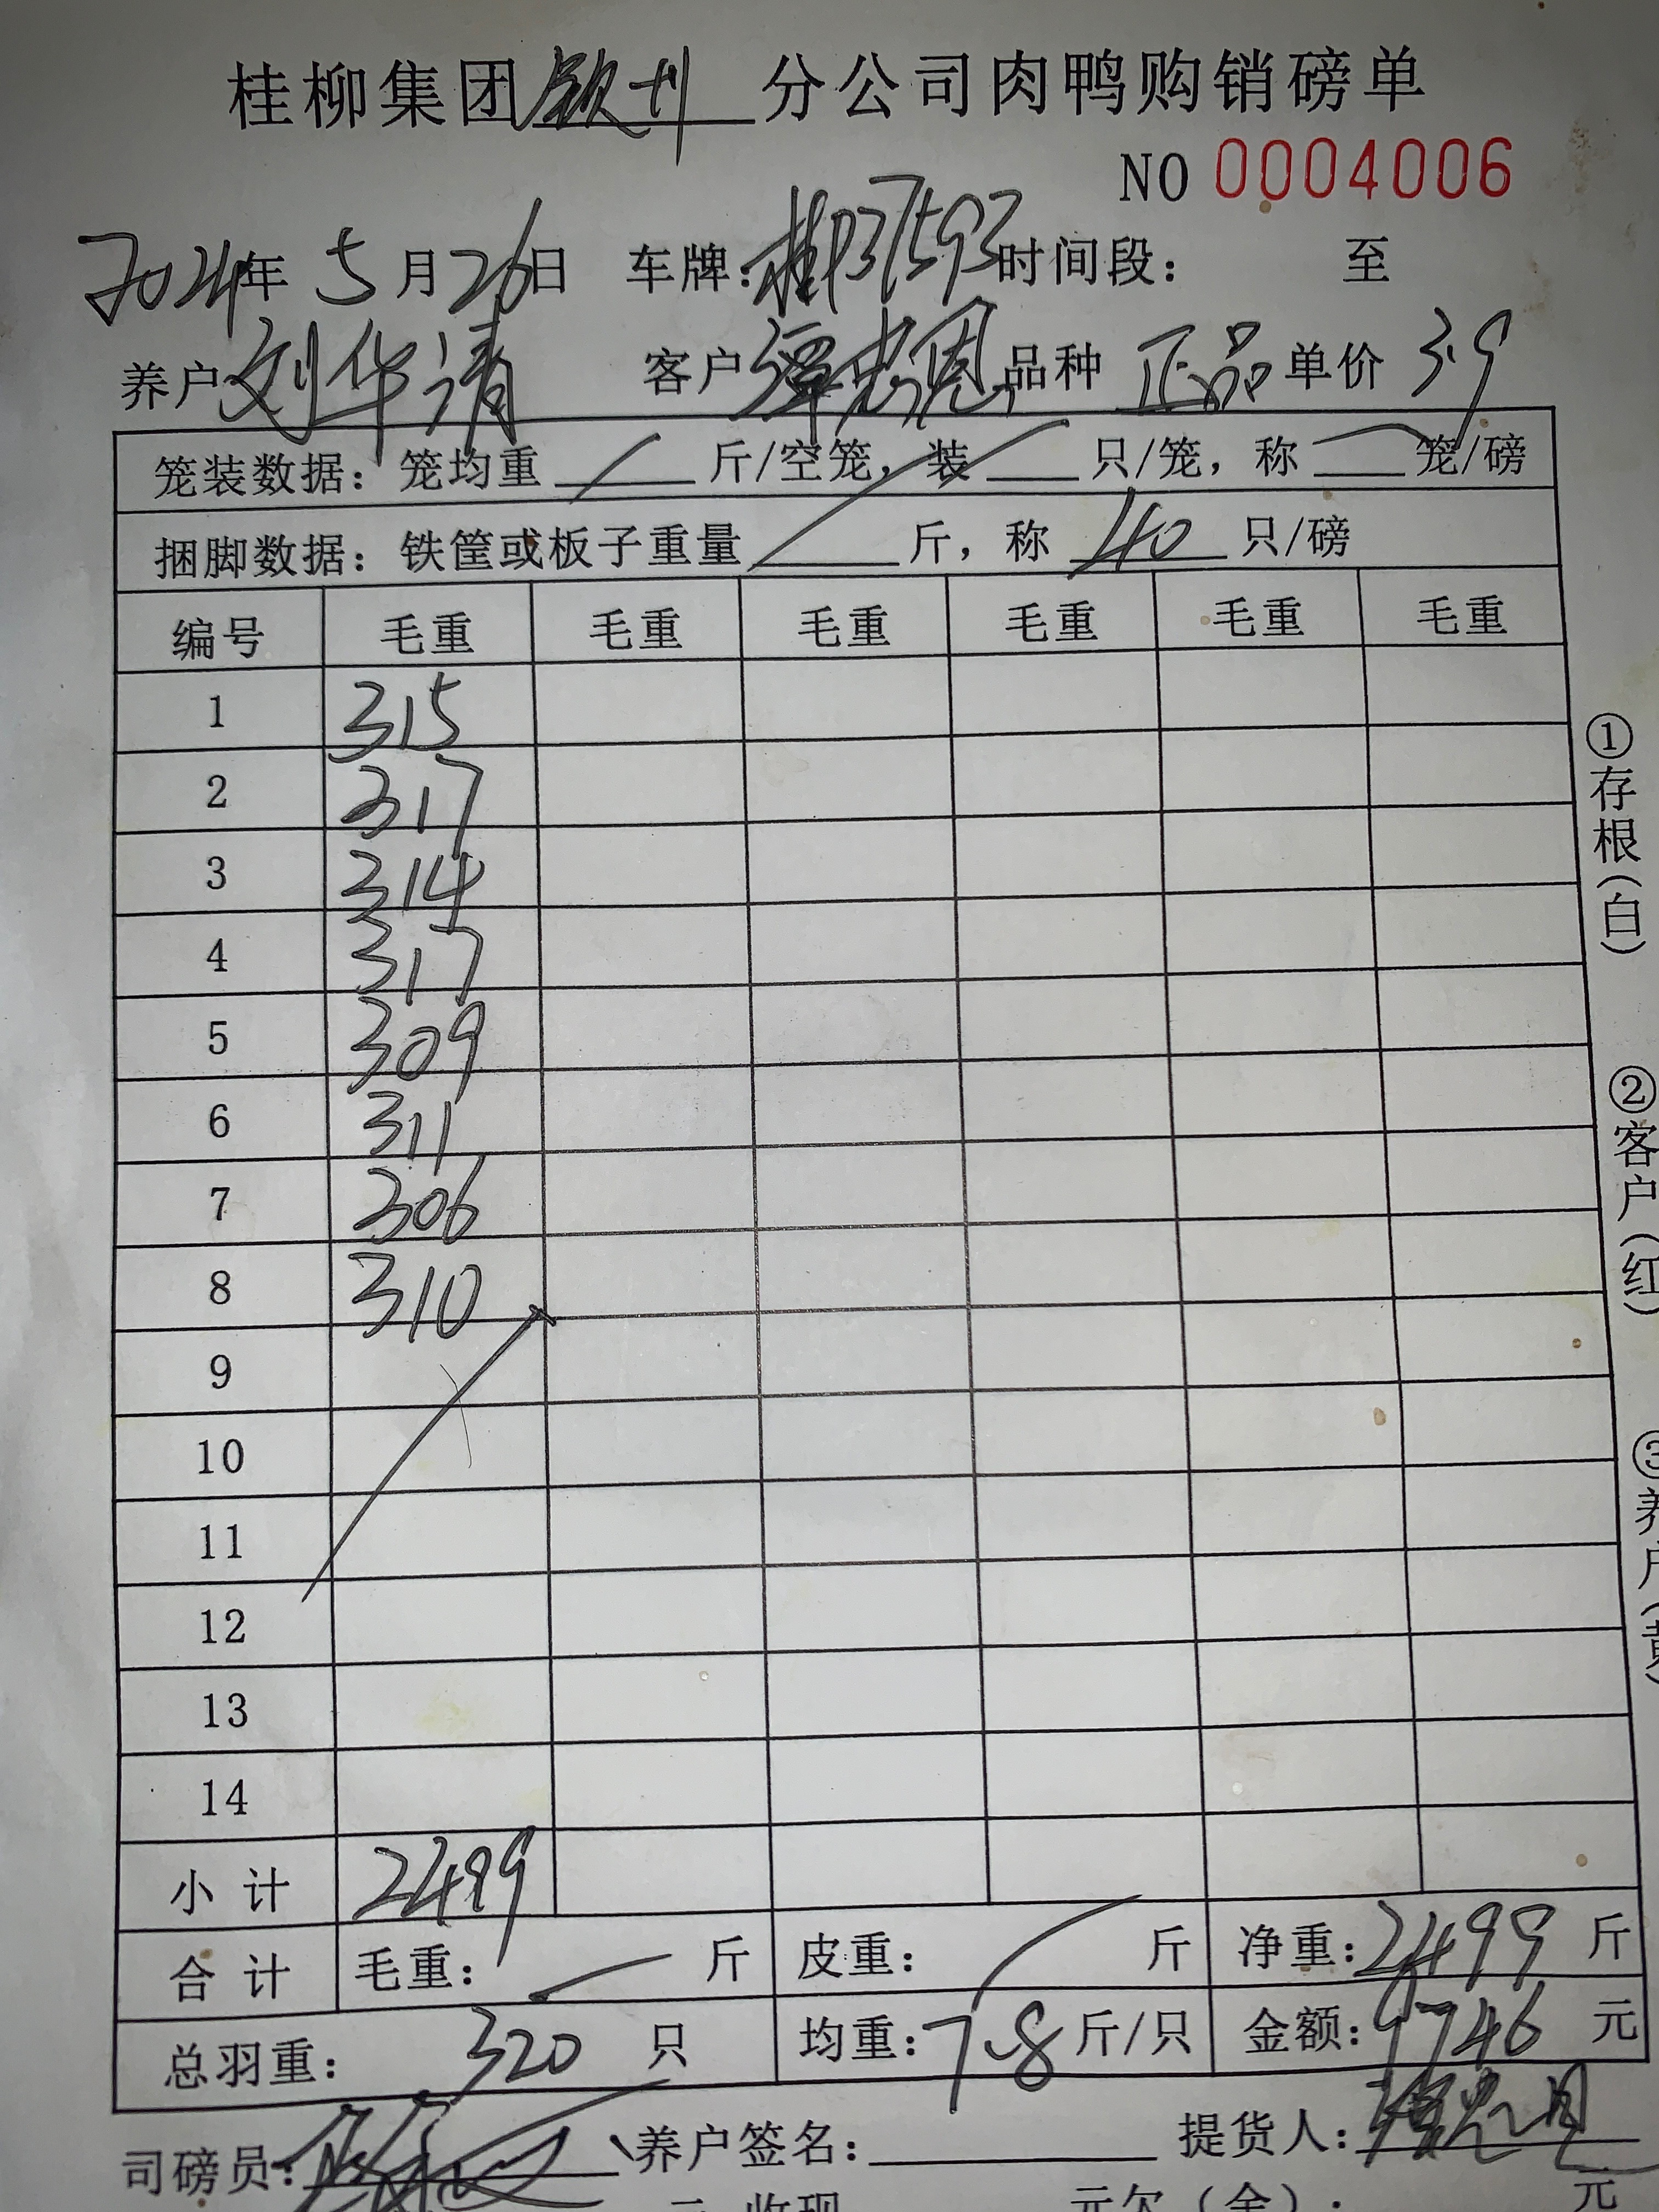 桂柳集团钦州分公司肉鸭购销磅单
NO 0004006
2024年5月26日 车牌：桂P37593 时间段： 至
养户 刘华清 客户 谭忠恩 品种 正品 单价 3.9
笼装数据：笼均重 斤/空笼，装 只/笼，称 笼/磅
捆脚数据：铁筐或板子重量 斤，称 40 只/磅
编号 毛重 毛重 毛重 毛重 毛重 毛重
1 315
2 317
3 314
4 317
5 309
6 311
7 306
8 310
9
10
11
12
13
14
小计 2499
合计 毛重： 斤 皮重： 斤 净重：2499 斤
总羽重：320 只 均重：7.8 斤/只 金额：9746 元
司磅员： 养户签名： 提货人：
元 收现 元欠（余）： 元
①存根（白）
②客户（红）
③养户（黄）